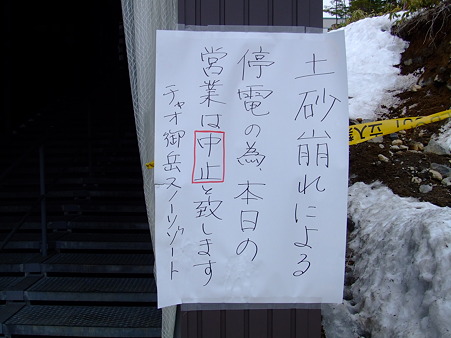 土砂崩れによる
停電の為、本日の
営業は中止と致します
チャオ御岳スノーリゾート
立入禁